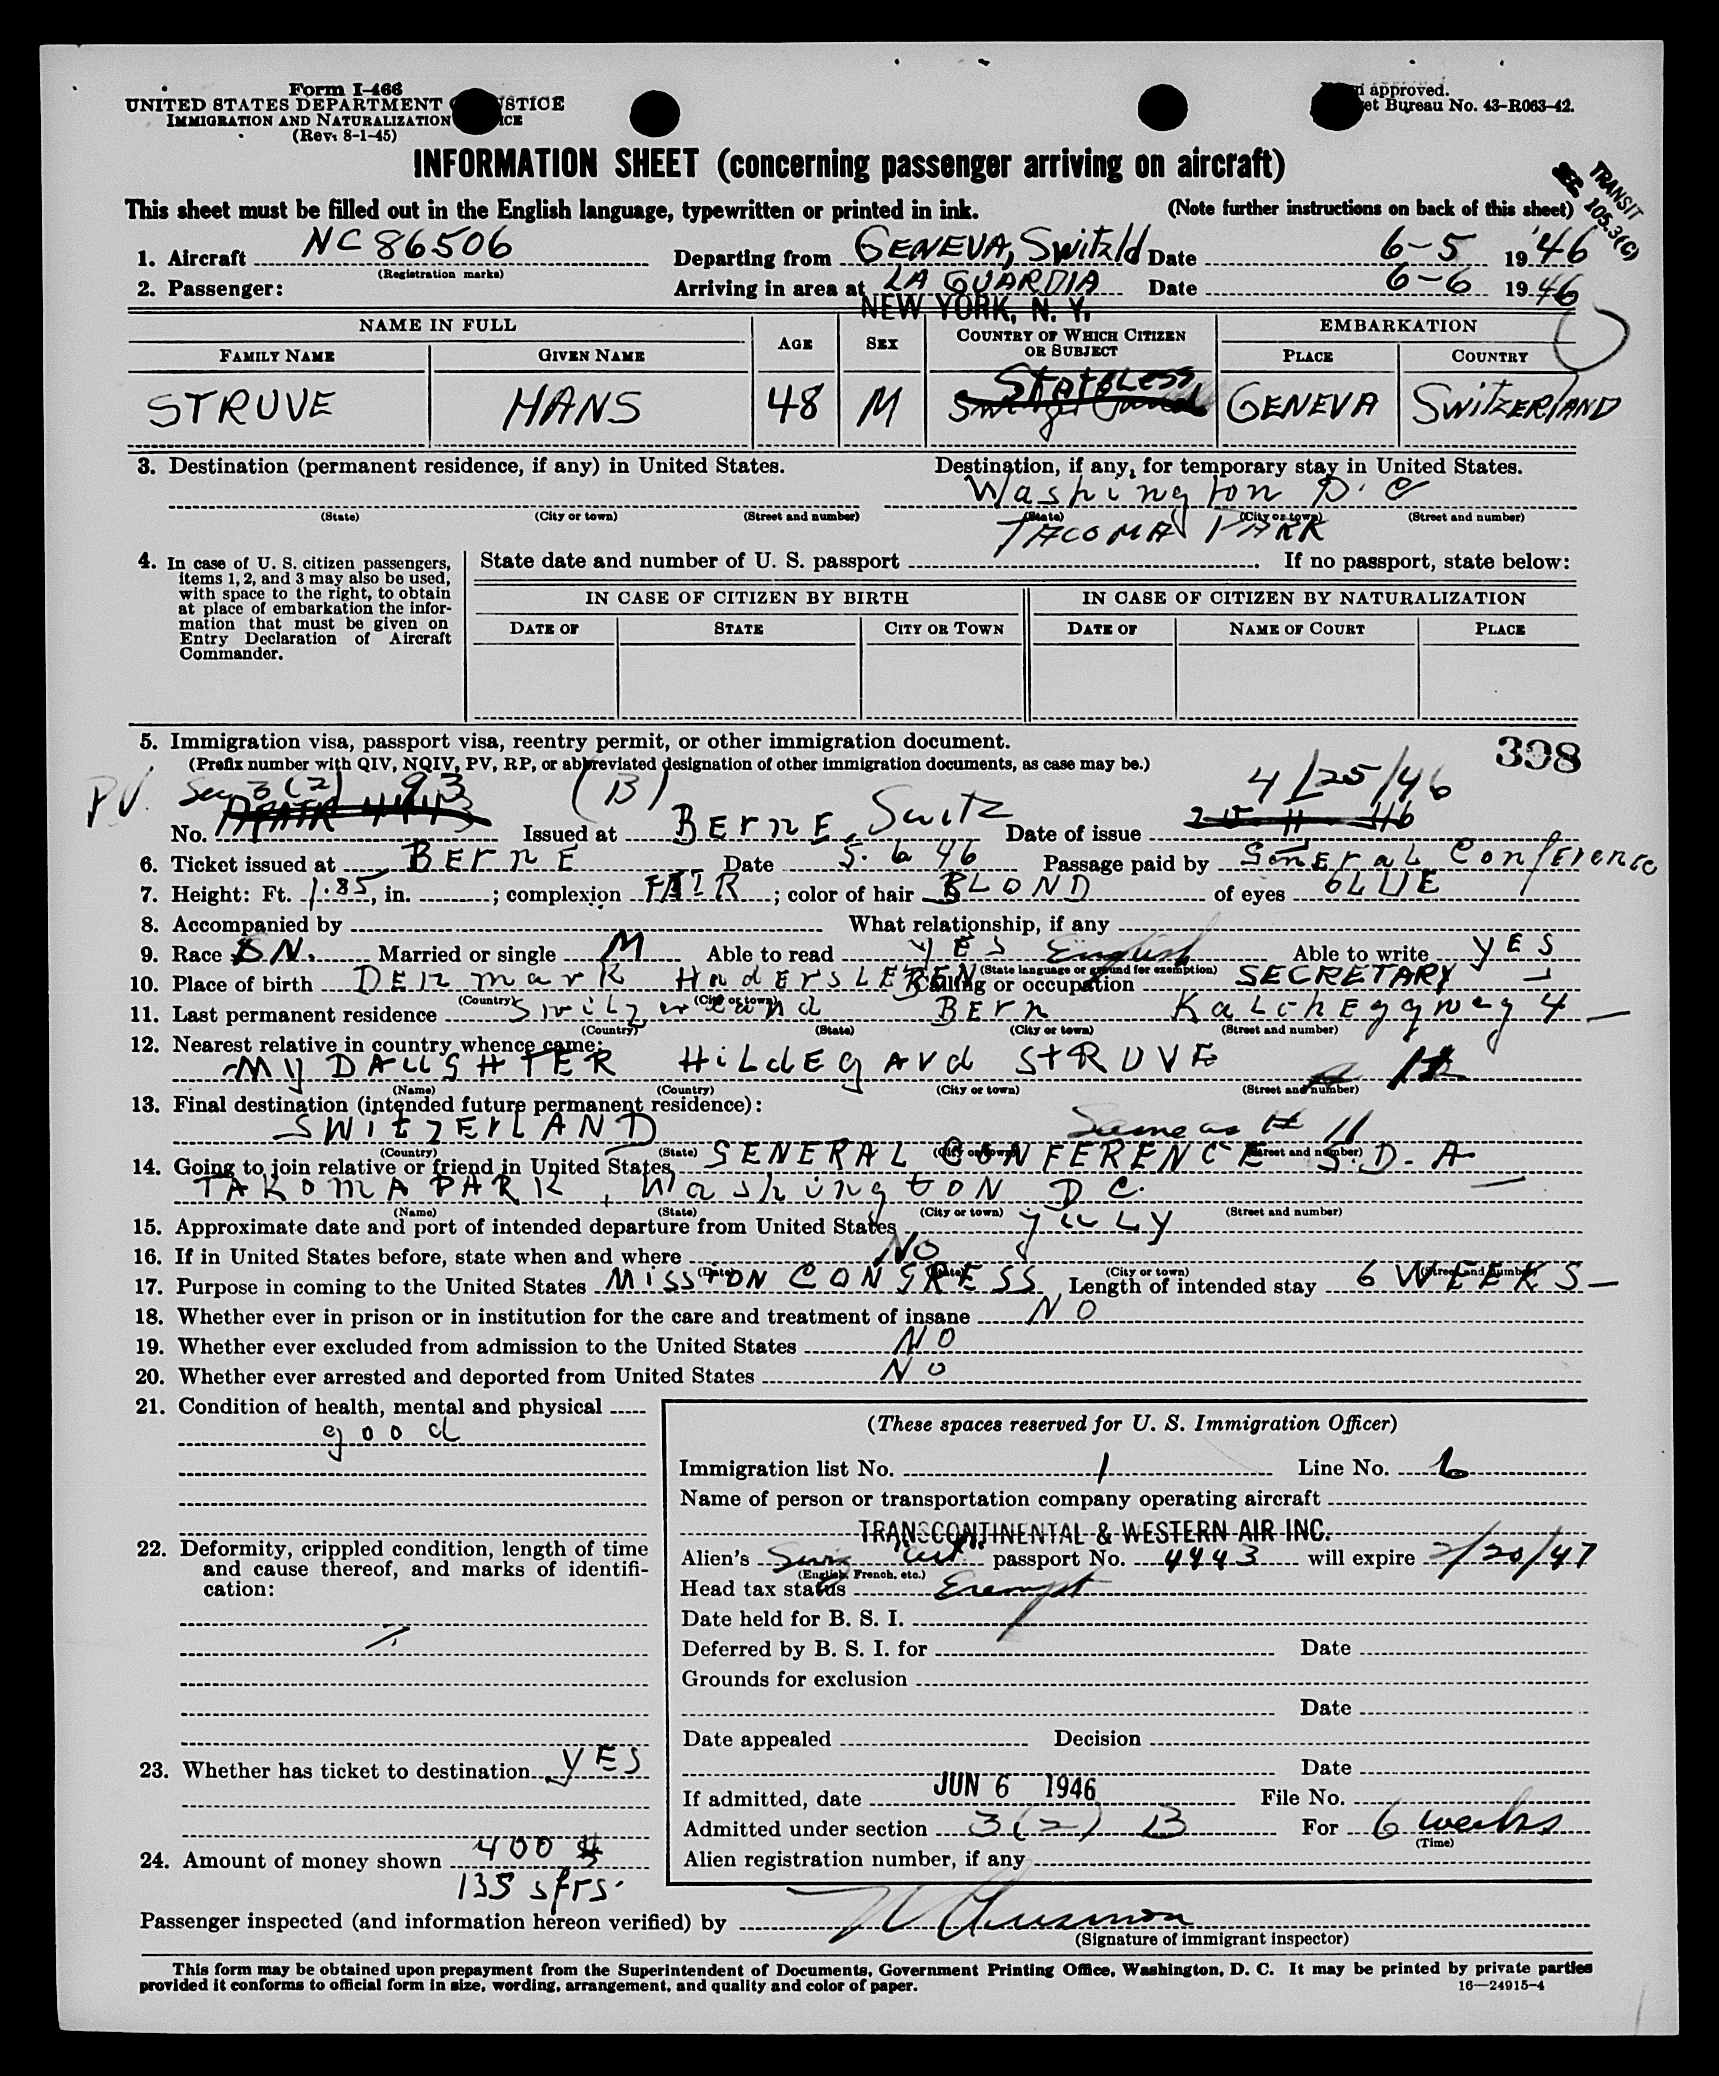 Form I-466
UNITED STATES DEPARTMENT OF JUSTICE
IMMIGRATION AND NATURALIZATION SERVICE
(Rev. 8-1-45)
Form approved.
Budget Bureau No. 43-R063-42.
INFORMATION SHEET (concerning passenger arriving on aircraft)
TRANSIT
SEC 105.3(C)
This sheet must be filled out in the English language, typewritten or printed in ink. (Note further instructions on back of this sheet)
1. Aircraft NC 86506 Departing from GENEVA, Switzld Date 6-5 19'46
(Registration marks)
2. Passenger: Arriving in area at LA GUARDIA Date 6-6 1946
NEW YORK, N. Y.
NAME IN FULL AGE SEX COUNTRY OF WHICH CITIZEN OR SUBJECT EMBARKATION
FAMILY NAME GIVEN NAME PLACE COUNTRY
StateLESS
STRUVE HANS 48 M GENEVA SWITZERLAND
3. Destination (permanent residence, if any) in United States. Destination, if any, for temporary stay in United States.
Washington D.C
(State) (City or town) (Street and number) (State) (City or town) (Street and number)
TACOMA PARK
4. In case of U. S. citizen passengers, items 1, 2, and 3 may also be used, with space to the right, to obtain at place of embarkation the information that must be given on Entry Declaration of Aircraft Commander.
State date and number of U. S. passport If no passport, state below:
IN CASE OF CITIZEN BY BIRTH IN CASE OF CITIZEN BY NATURALIZATION
DATE OF STATE CITY OR TOWN DATE OF NAME OF COURT PLACE
5. Immigration visa, passport visa, reentry permit, or other immigration document. 398
(Prefix number with QIV, NQIV, PV, RP, or abbreviated designation of other immigration documents, as case may be.)
PV. Sec 3(2) 93 (B) 4/25/46
No. Issued at BErnE, Switz Date of issue
6. Ticket issued at BErnE Date 5. 6 46 Passage paid by GenEraL ConfErence
7. Height: Ft. 1.85, in. ; complexion FAIR ; color of hair BLOND of eyes bLUE
8. Accompanied by What relationship, if any
9. Race Married or single M Able to read YES English Able to write YES
(State language or ground for exemption)
10. Place of birth DEnmark HadersLEBEN Calling or occupation SECRETARY
(Country) (City or town)
11. Last permanent residence Switzerland BErn KaLchEggweg 4
(Country) (State) (City or town) (Street and number)
12. Nearest relative in country whence came:
MY DAUGHTER HiLdEgard STRUVE
(Name) (Country) (City or town) (Street and number)
13. Final destination (intended future permanent residence):
SWitzErLAND Same as # 11
(Country) (State) (City or town) (Street and number)
14. Going to join relative or friend in United States GENERAL CONFERENCE S.D.A
TAKOMA PARK, Washington D C.
(Name) (State) (City or town) (Street and number)
15. Approximate date and port of intended departure from United States juLy
16. If in United States before, state when and where NO
(Date) (State) (City or town) (Street and number)
17. Purpose in coming to the United States MISSION CONGRESS Length of intended stay 6 WEEKS
18. Whether ever in prison or in institution for the care and treatment of insane NO
19. Whether ever excluded from admission to the United States NO
20. Whether ever arrested and deported from United States NO
21. Condition of health, mental and physical
good
22. Deformity, crippled condition, length of time and cause thereof, and marks of identification:
23. Whether has ticket to destination YES
24. Amount of money shown 400 $
135 sfrs.
(These spaces reserved for U. S. Immigration Officer)
Immigration list No. 1 Line No. 6
Name of person or transportation company operating aircraft
TRANSCONTINENTAL & WESTERN AIR INC.
Alien's Swiss passport No. 4443 will expire 2/20/47
(English, French, etc.)
Head tax status Exempt
Date held for B. S. I.
Deferred by B. S. I. for Date
Grounds for exclusion
Date
Date appealed Decision
Date
If admitted, date JUN 6 1946 File No.
Admitted under section 3(2) B For 6 weeks
(Time)
Alien registration number, if any
Passenger inspected (and information hereon verified) by
(Signature of immigrant inspector)
This form may be obtained upon prepayment from the Superintendent of Documents, Government Printing Office, Washington, D. C. It may be printed by private parties
provided it conforms to official form in size, wording, arrangement, and quality and color of paper. 16—24915-4